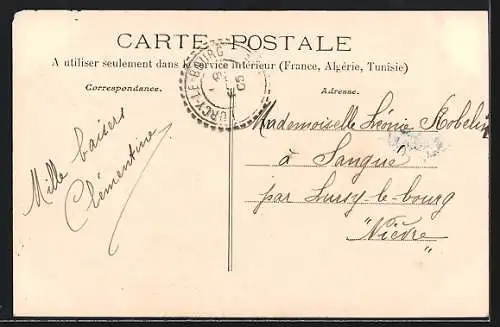 CARTE POSTALE
A utiliser seulement dans le service intérieur (France, Algérie, Tunisie)
Correspondance.
Adresse.
URCY-LE-BOURG
05
Mille baisers
Clémentine
Mademoiselle Léonie Robelin
à Sangué
par Lurcy-le-bourg
"Nièvre"